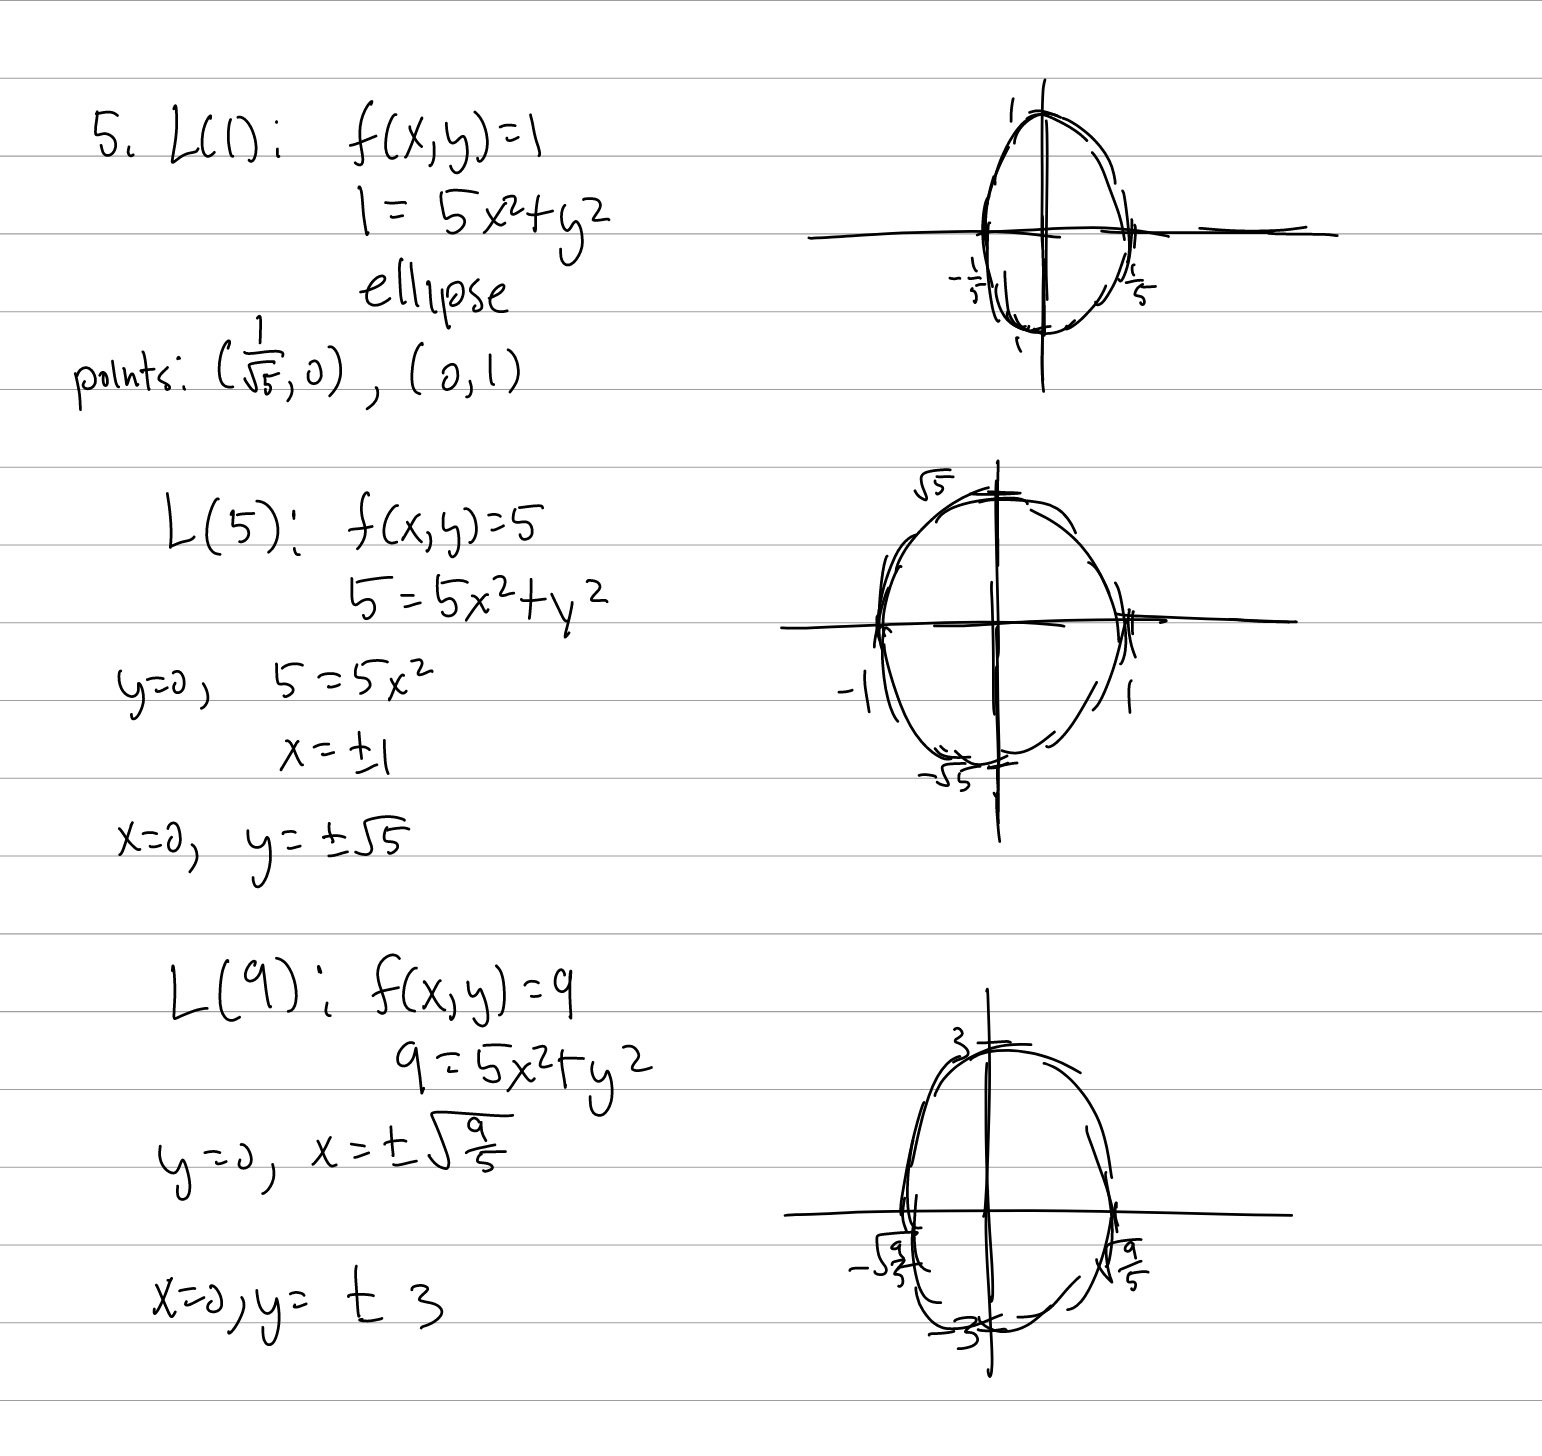 5. L(1): f(x,y)=1
1= 5x²+y²
ellipse
points: (1/√5, 0), (0,1)
1
-1/5
1/5
1
L(5): f(x,y)=5
5=5x²+y²
y=0, 5=5x²
x=±1
x=0, y=±√5
√5
-1
1
-√5
L(9): f(x,y)=9
9=5x²+y²
y=0, x=±√(9/5)
x=0, y= ±3
3
-√(9/5)
√(9/5)
-3